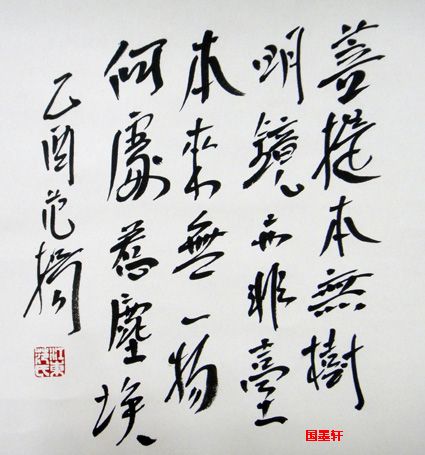 菩提本無樹
明鏡亦非臺
本來無一物
何處舊塵埃
乙酉范揚
江東范氏
国墨轩